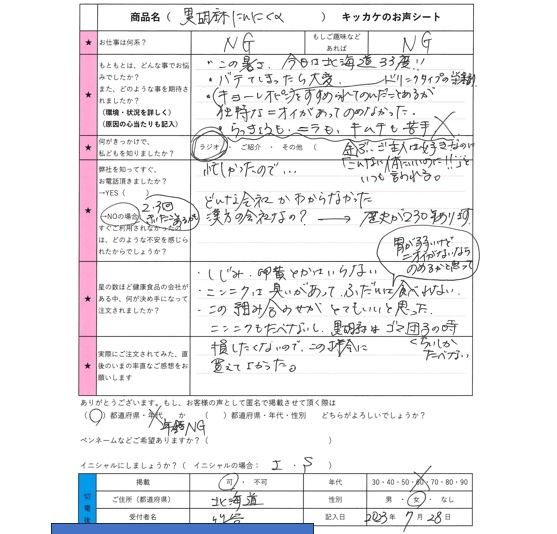 商品名（ 黒胡麻にんにくα ） キッカケのお声シート
★ お仕事は何系？ NG もしご趣味など あれば NG
★ もともとは、どんな事でお悩みでしたか？
また、どのような事を期待されましたか？
（環境・状況を詳しく）
（原因の心当たりも記入）
・この暑さ、今日は北海道33度！！
・バテてしまったら大変。 ドリンクタイプの
・（キョーレオピンをすすめられてのんだことあるが
独特なニオイがあってのめなかった。
・らっきょうも、ニラも、キムチも苦手
★ 何がきっかけで、
私どもを知りましたか？
ラジオ ・ ご紹介 ・ その他 （
ご主人は好きなので
「こんなに体にいいのに！！」と
いつも言われる。
★ 弊社を知ってすぐ、
お電話頂きましたか？
→YES（ ）
→NOの場合
すぐご利用されなかったの
は、どのような不安を感じら
れたからでしょうか？
2、3回
きいたことあるが
忙しかったので…
どんな会社かわからなかった
漢方の会社なの？ → 歴史が230年あります
★ 星の数ほど健康食品の会社が
ある中、何が決め手になって
注文されましたか？
胃が弱いけど
ニオイがないなら
のめるかと思って
・しじみ、卵黄とかはいらない
・ニンニクは臭いがあって、ふだんは食べれない。
・この組み合わせが とてもいいと思った。
ニンニクもたべないし、黒胡麻はゴマ団子の時
くらいしか
たべない
★ 実際にご注文されてみた、直
後のいまの率直なご感想をお
願いします
損したくないので、この機会に
買えてよかった。
ありがとうございます。もし、お客様の声として匿名で掲載させて頂く際は
（○）都道府県・年代 か （ ）都道府県・年代・性別 どちらがよろしいでしょうか？
年齢NG
ペンネームなどご希望ありますか？（ ）
イニシャルにしましょうか？（ イニシャルの場合： I ・ S ）
掲載 可 ・ 不可 年代 30・40・50・60・70・80・90
ご住所（都道府県） 北海道 性別 男 ・ 女 ・ なし
受付者名 記入日 2023年 7月 28日